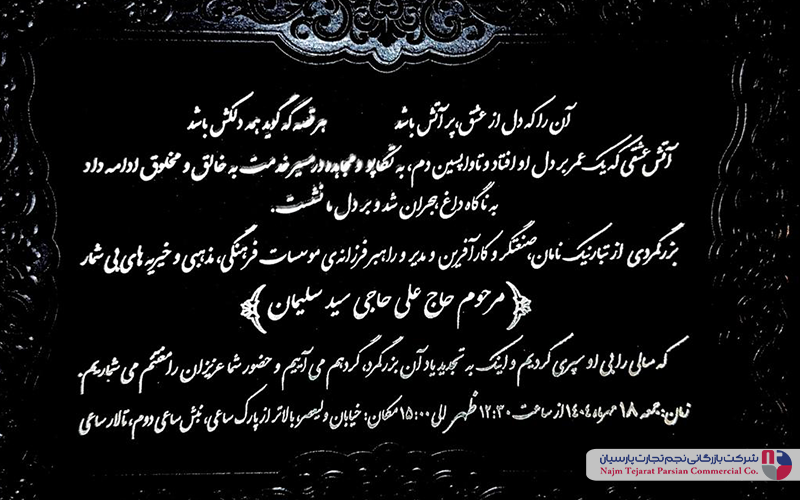 آن را که دل از عشق، پر آتش باشد هر قصه که گوید همه دلکش باشد
آتش عشقی که یک عمر بر دل او افتاد و تا واپسین دم، به تکاپو و مجاهده در مسیر خدمت به خالق و مخلوق ادامه داد
به ناگاه داغ هجران شد و بر دل ما نشست.
بزرگمردی از تبار نیک نامان، صنعتگر و کارآفرین و مدیر و راهبر فرزانه‌ی موسسات فرهنگی، مذهبی و خیریه های بی شمار
مرحوم حاج علی حاجی سید سلیمان
که سالی را بی او سپری کردیم و اینک به تجدید یاد آن بزرگمرد، گرد هم می آییم و حضور شما عزیزان را مغتنم می شماریم.
زمان: جمعه ۱۸ مهرماه ۱۴۰۴ از ساعت ۱۲:۳۰ ظهر الی ۱۵:۰۰ مکان: خیابان ولیعصر، بالاتر از پارک ساعی، نبش ساعی دوم، تالار ساعی
شرکت بازرگانی نجم تجارت پارسیان
Najm Tejarat Parsian Commercial Co.